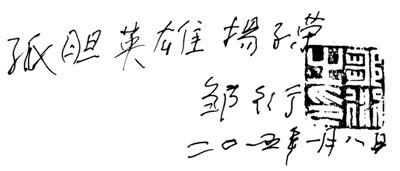 孤胆英雄揚子荣
邹衍
二〇一五年一月八日